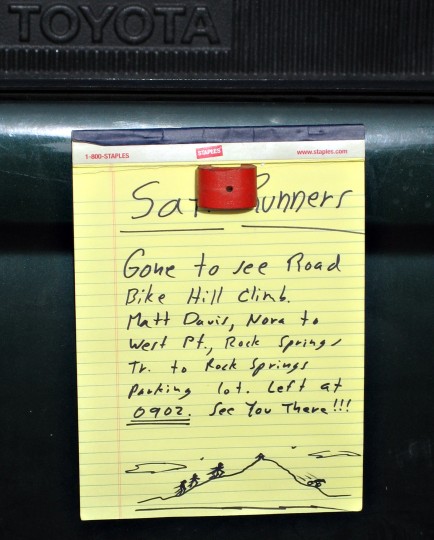 TOYOTA
1-800-STAPLES STAPLES www.staples.com
Runners
Gone to see Road
Bike Hill Climb.
Matt Davis, Nora to
West Pt., Rock Springs
Tr. to Rock Springs
Parking lot. Left at
0902. See You There!!!